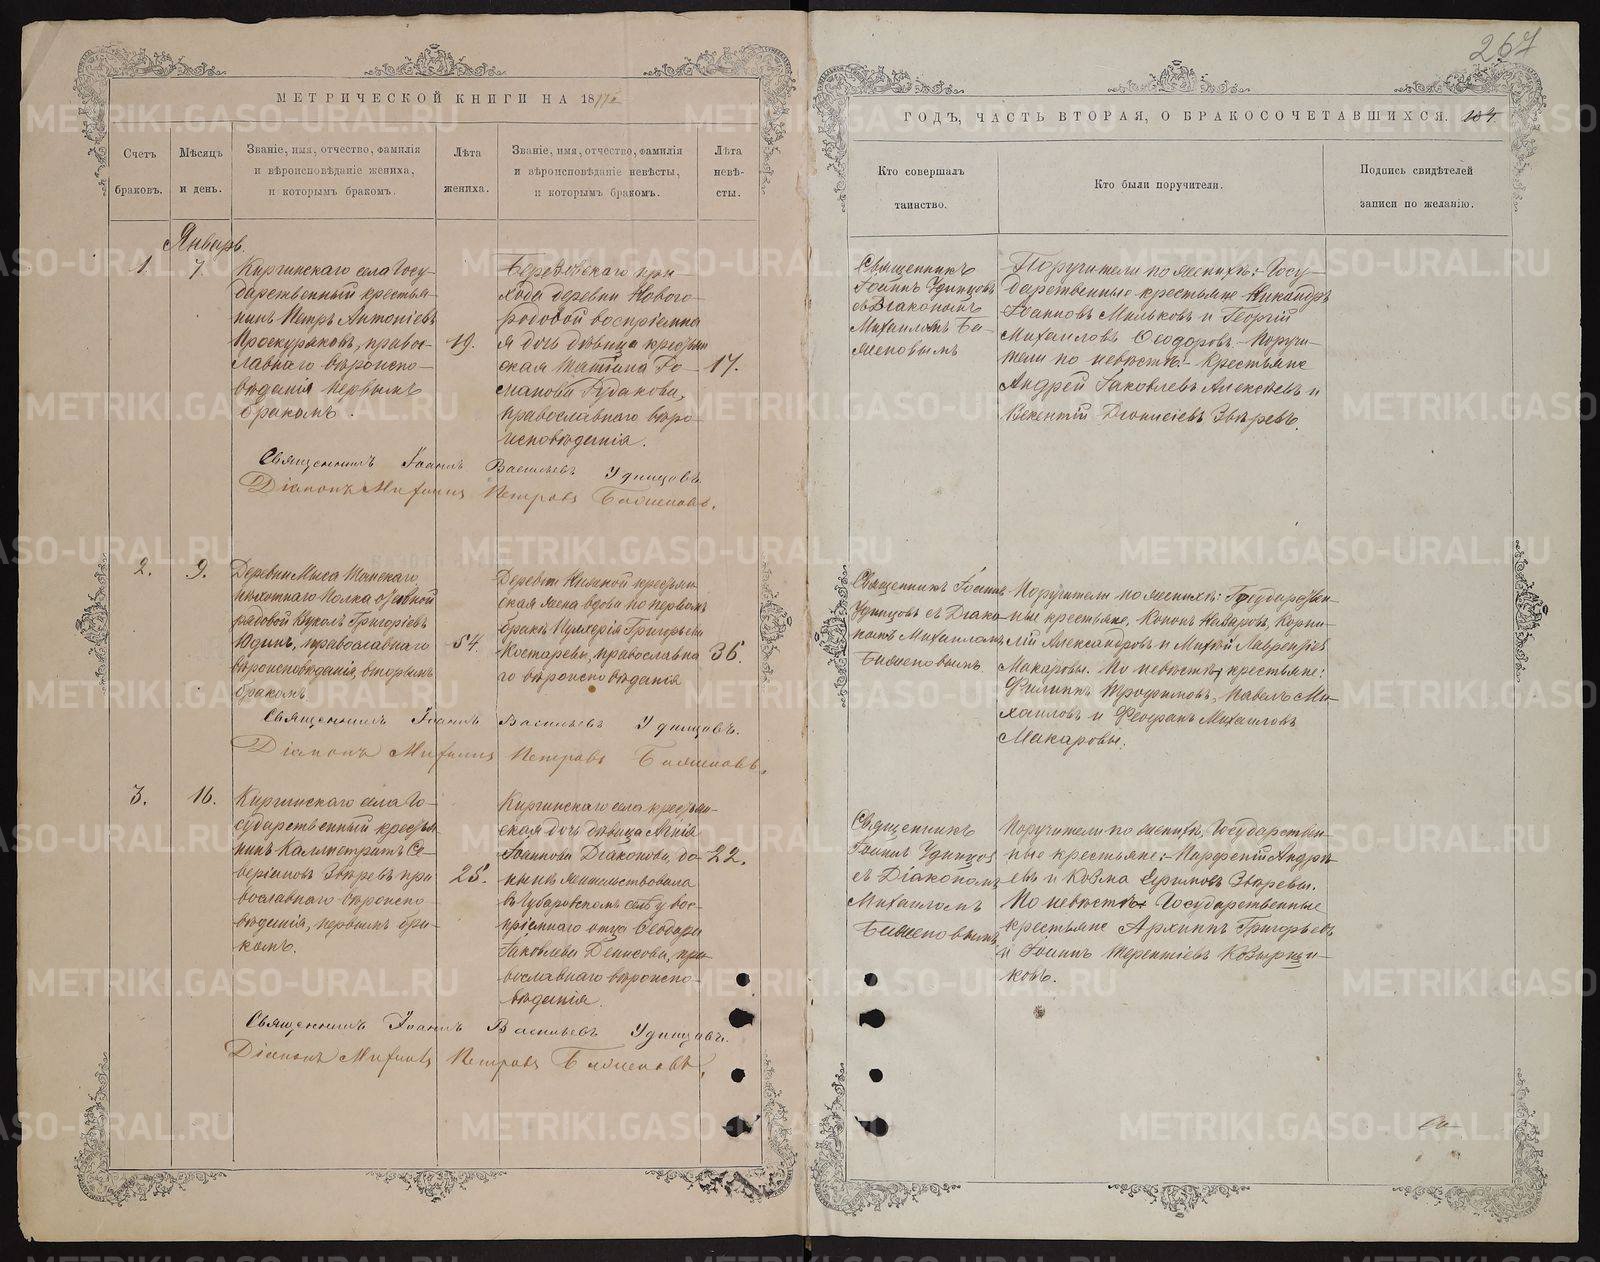 267
МЕТРИЧЕСКОЙ КНИГИ НА 18
ГОДЪ, ЧАСТЬ ВТОРАЯ, О БРАКОСОЧЕТАВШИХСЯ.
Счетъ браковъ.
Мѣсяцъ и день.
Званіе, имя, отчество, фамилія
и вѣроисповѣданіе жениха,
и которымъ бракомъ.
Лѣта жениха.
Званіе, имя, отчество, фамилія
и вѣроисповѣданіе невѣсты,
и которымъ бракомъ.
Лѣта невѣ-
сты.
Кто совершалъ
таинство.
Кто были поручители.
Подпись свидѣтелей
записи по желанію.
Январь.
1. 7.
Киргинскаго села Госу-
дарственный крестья-
нинъ Петръ Антоніевъ
Проскуряковъ, право-
славнаго вѣроиспо-
вѣданія первымъ
бракомъ.
19.
прихода деревни Новаго-
родовой воспріемна-
я дочь дѣвица крестьян-
ская Татіана Ро-
манова Рудакова,
православнаго вѣро-
исповѣданія.
17.
Священникъ
Іоаннъ Удинцовъ
съ Діакономъ
Михаиломъ Ба-
женовымъ
Поручители по женихѣ: Госу-
дарственные крестьяне Никандръ
Іоанновъ Мильковъ и Георгій
Михаиловъ Ѳеодоровъ. Поручи-
тели по невѣстѣ: Крестьяне
Андрей Іаковлевъ Алексѣевъ и
Викентій Діонисіевъ Звѣревъ.
Священникъ Іоаннъ Васильевъ Удинцовъ.
Діаконъ Михаилъ Петровъ Баженовъ.
2. 9.
Деревни Мыса Томскаго
пѣхотнаго Полка
рядовой Вуколъ Григоріевъ
Юдинъ, православнаго
вѣроисповѣданія, вторымъ
бракомъ
54.
Деревни крестьян-
ская жена вдова по первомъ
бракѣ Пулхерія Григорьева
Костарева, православна-
го вѣроисповѣданія
36.
Священникъ Іоаннъ
Удинцовъ съ Діако-
номъ Михаиломъ
Баженовымъ
Поручители по женихѣ: Государствен-
ные крестьяне, Кононъ Назаровъ, Корни-
лій Александровъ и Лаврентіевъ
Макаровы. По невѣстѣ крестьяне:
Филиппъ Трофимовъ, Павелъ Ми-
хаиловъ и Феофанъ Михаиловъ
Макаровы.
Священникъ Іоаннъ Васильевъ Удинцовъ.
Діаконъ Михаилъ Петровъ Баженовъ.
3. 16.
Киргинскаго села Го-
сударственный крестья-
нинъ Каллистратъ Се-
веріановъ Звѣревъ пра-
вославнаго вѣроиспо-
вѣданія, первымъ бра-
комъ.
25.
Киргинскаго села крестьян-
ская дочь дѣвица Агнія
Іоаннова Діаконова, до-
нынѣ жительствовала
въ Губаровскомъ селѣ у вос-
пріемнаго отца Ѳеодора
Іаковлева Денисова, пра-
вославнаго вѣроиспо-
вѣданія.
22.
Священникъ
Іоаннъ Удинцовъ
съ Діакономъ
Михаиломъ
Баженовымъ
Поручители по женихѣ, Государствен-
ные крестьяне: Парфеній Андре-
евъ и Козма Ефимовъ Звѣревы.
По невѣстѣ Государственные
крестьяне Архиппъ Григорьевъ
и Іоаннъ Терентіевъ Козырщи-
ковъ.
Священникъ Іоаннъ Васильевъ Удинцовъ.
Діаконъ Михаилъ Петровъ Баженовъ.
METRIKI.GASO-URAL.RU